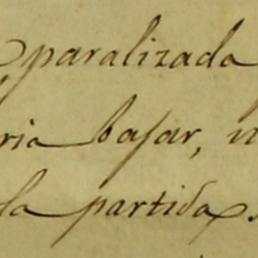 paralizada
ria bajar,
la partida.